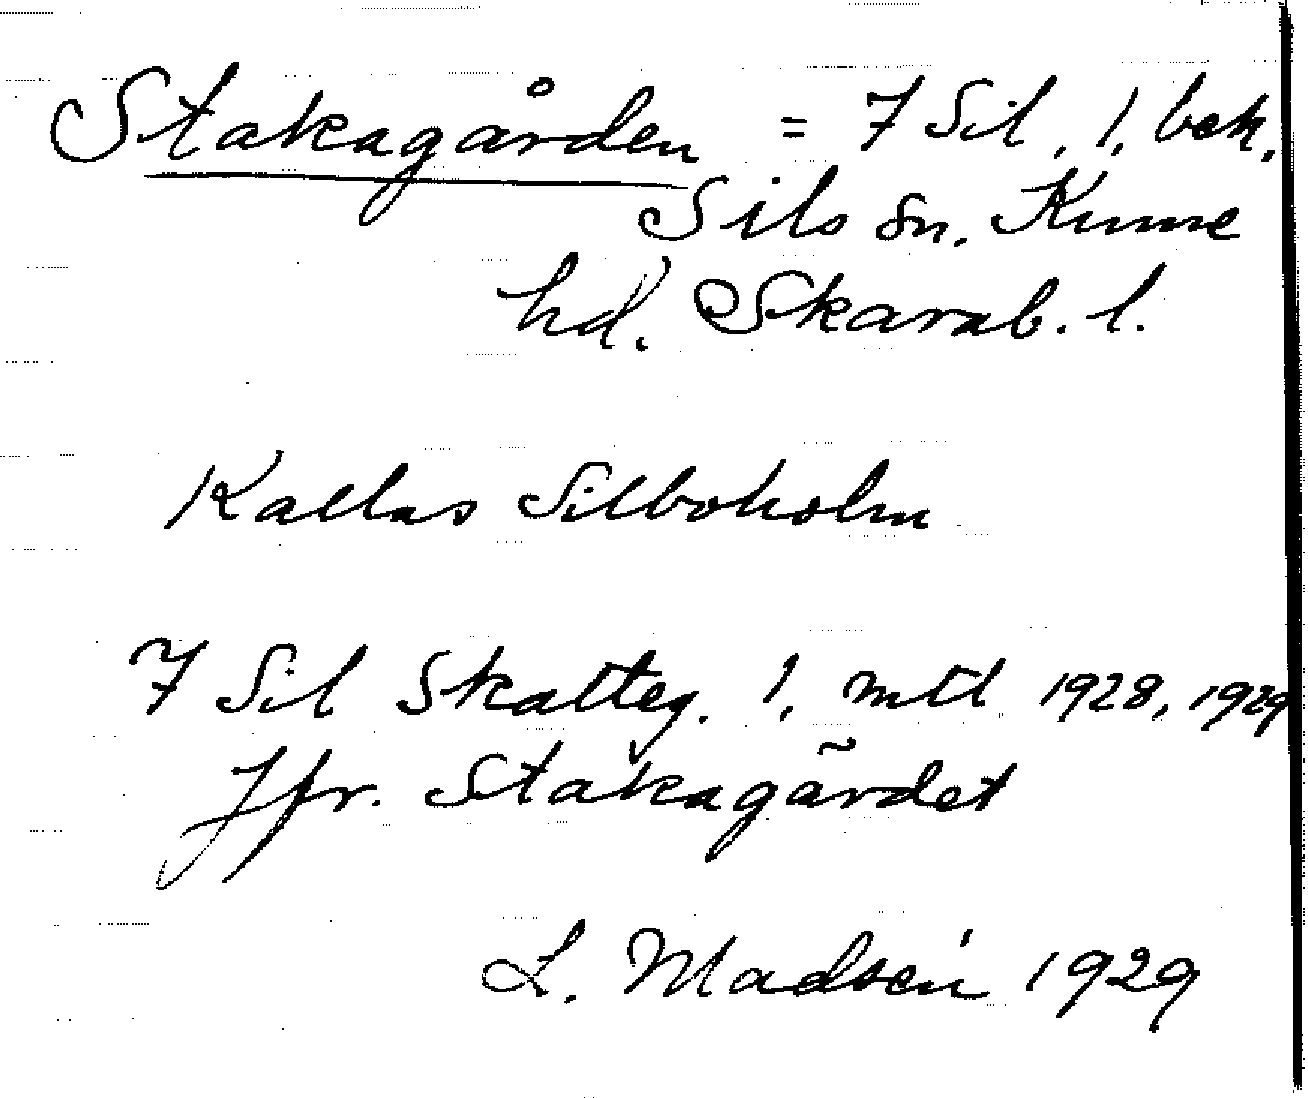 Stakagården = 7 Sil, 1, bek.
Sils sn. Kinne
hd. Skarab. l.
Kallas Silboholm
7 Sil Skatteg. 1, mtl 1928, 1929
Jfr. Stakagärdet
L. Madsén 1929